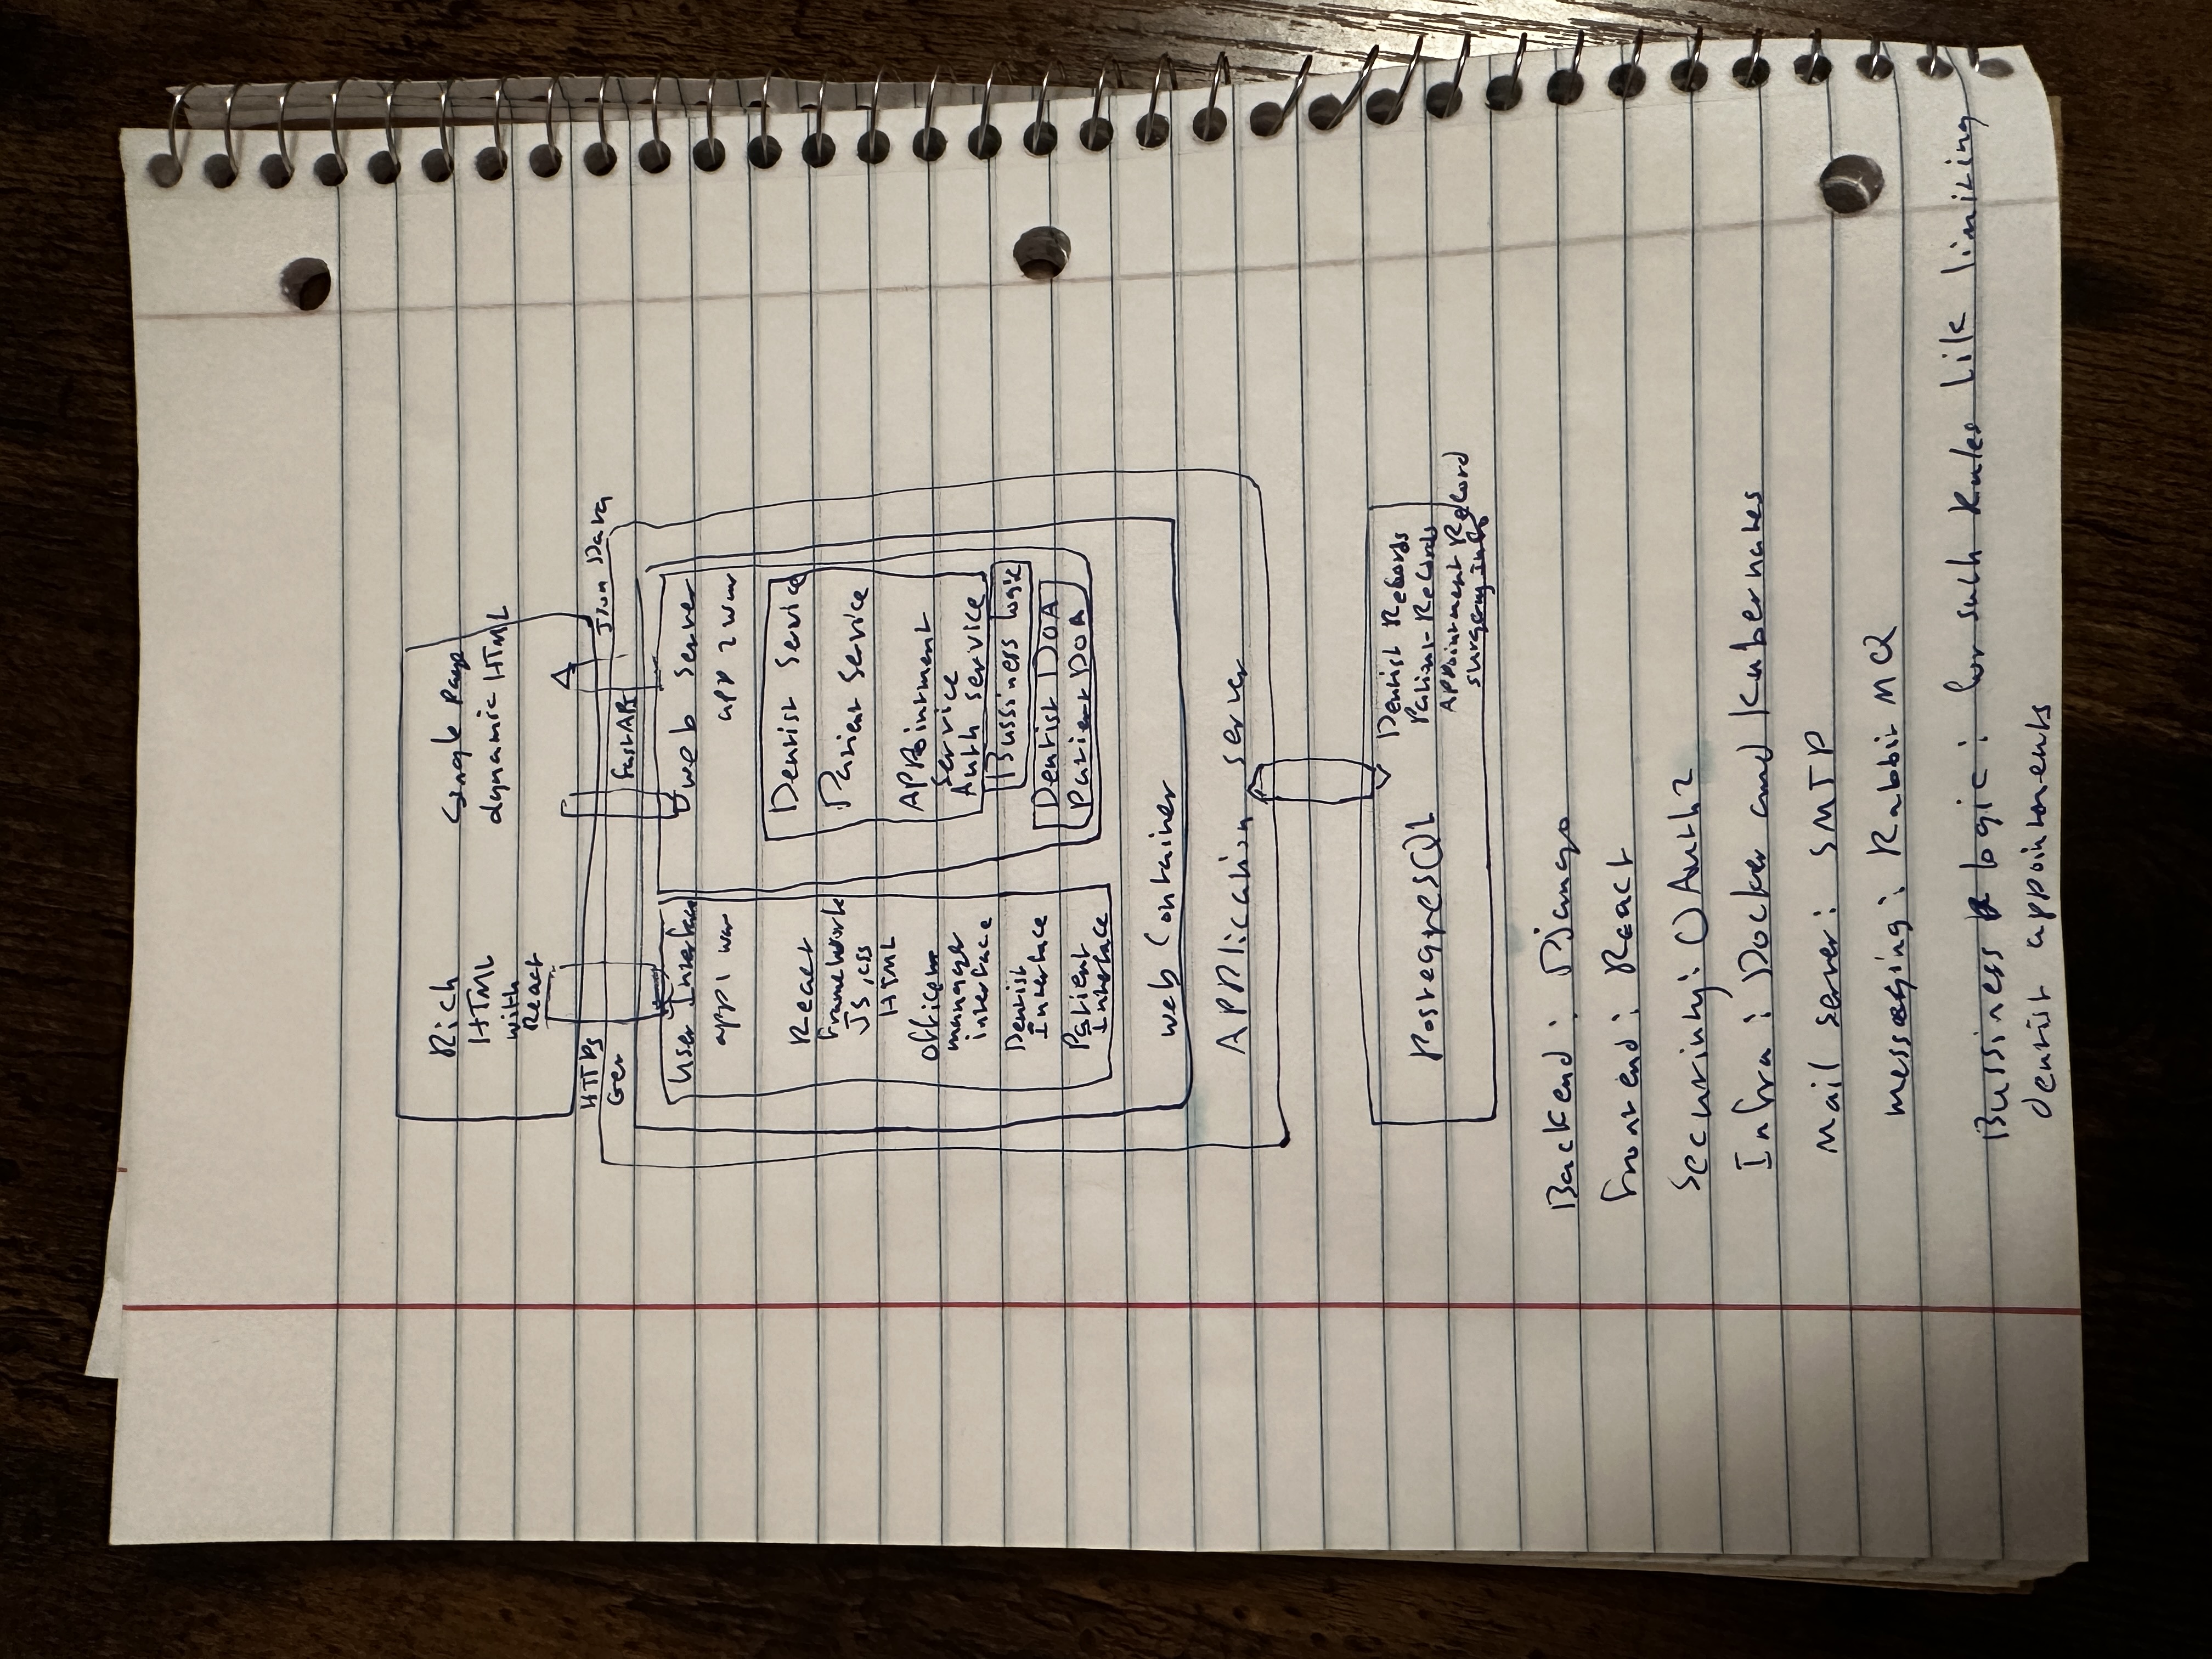 Rich
HTML
with
React
Single Page
dynamic HTML
HTTPs
Get
FastAPI
Json Data
User Interface
app1 war
React
Framework
JS, css
HTML
Office
manager
interface
Dentist
Interface
Patient
Interface
web server
app 2 war
Dentist Service
Patient Service
APPointment
Service
Auth service
Bussiness logic
Dentist DOA
Patient DOA
web Container
APPlication server
PostegresQL
Dentist Records
Patient Records
APPointment Record
surgery info
Backend: Django
frontend: React
Security: OAuth2
Infra: Docker and Kubernates
Mail server: SMTP
messaging: Rabbit MQ
Bussiness logic: for such Rules lik limiting
dentist appointments